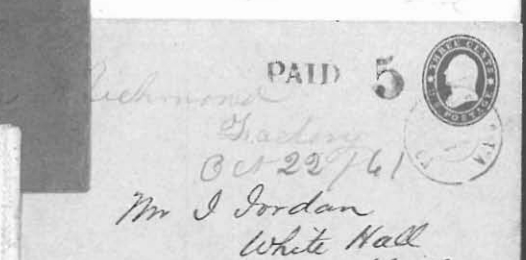 PAID 5
THREE CENTS
POSTAGE
Richmond
Factory
Oct 22/61
Mr I Jordan
White Hall